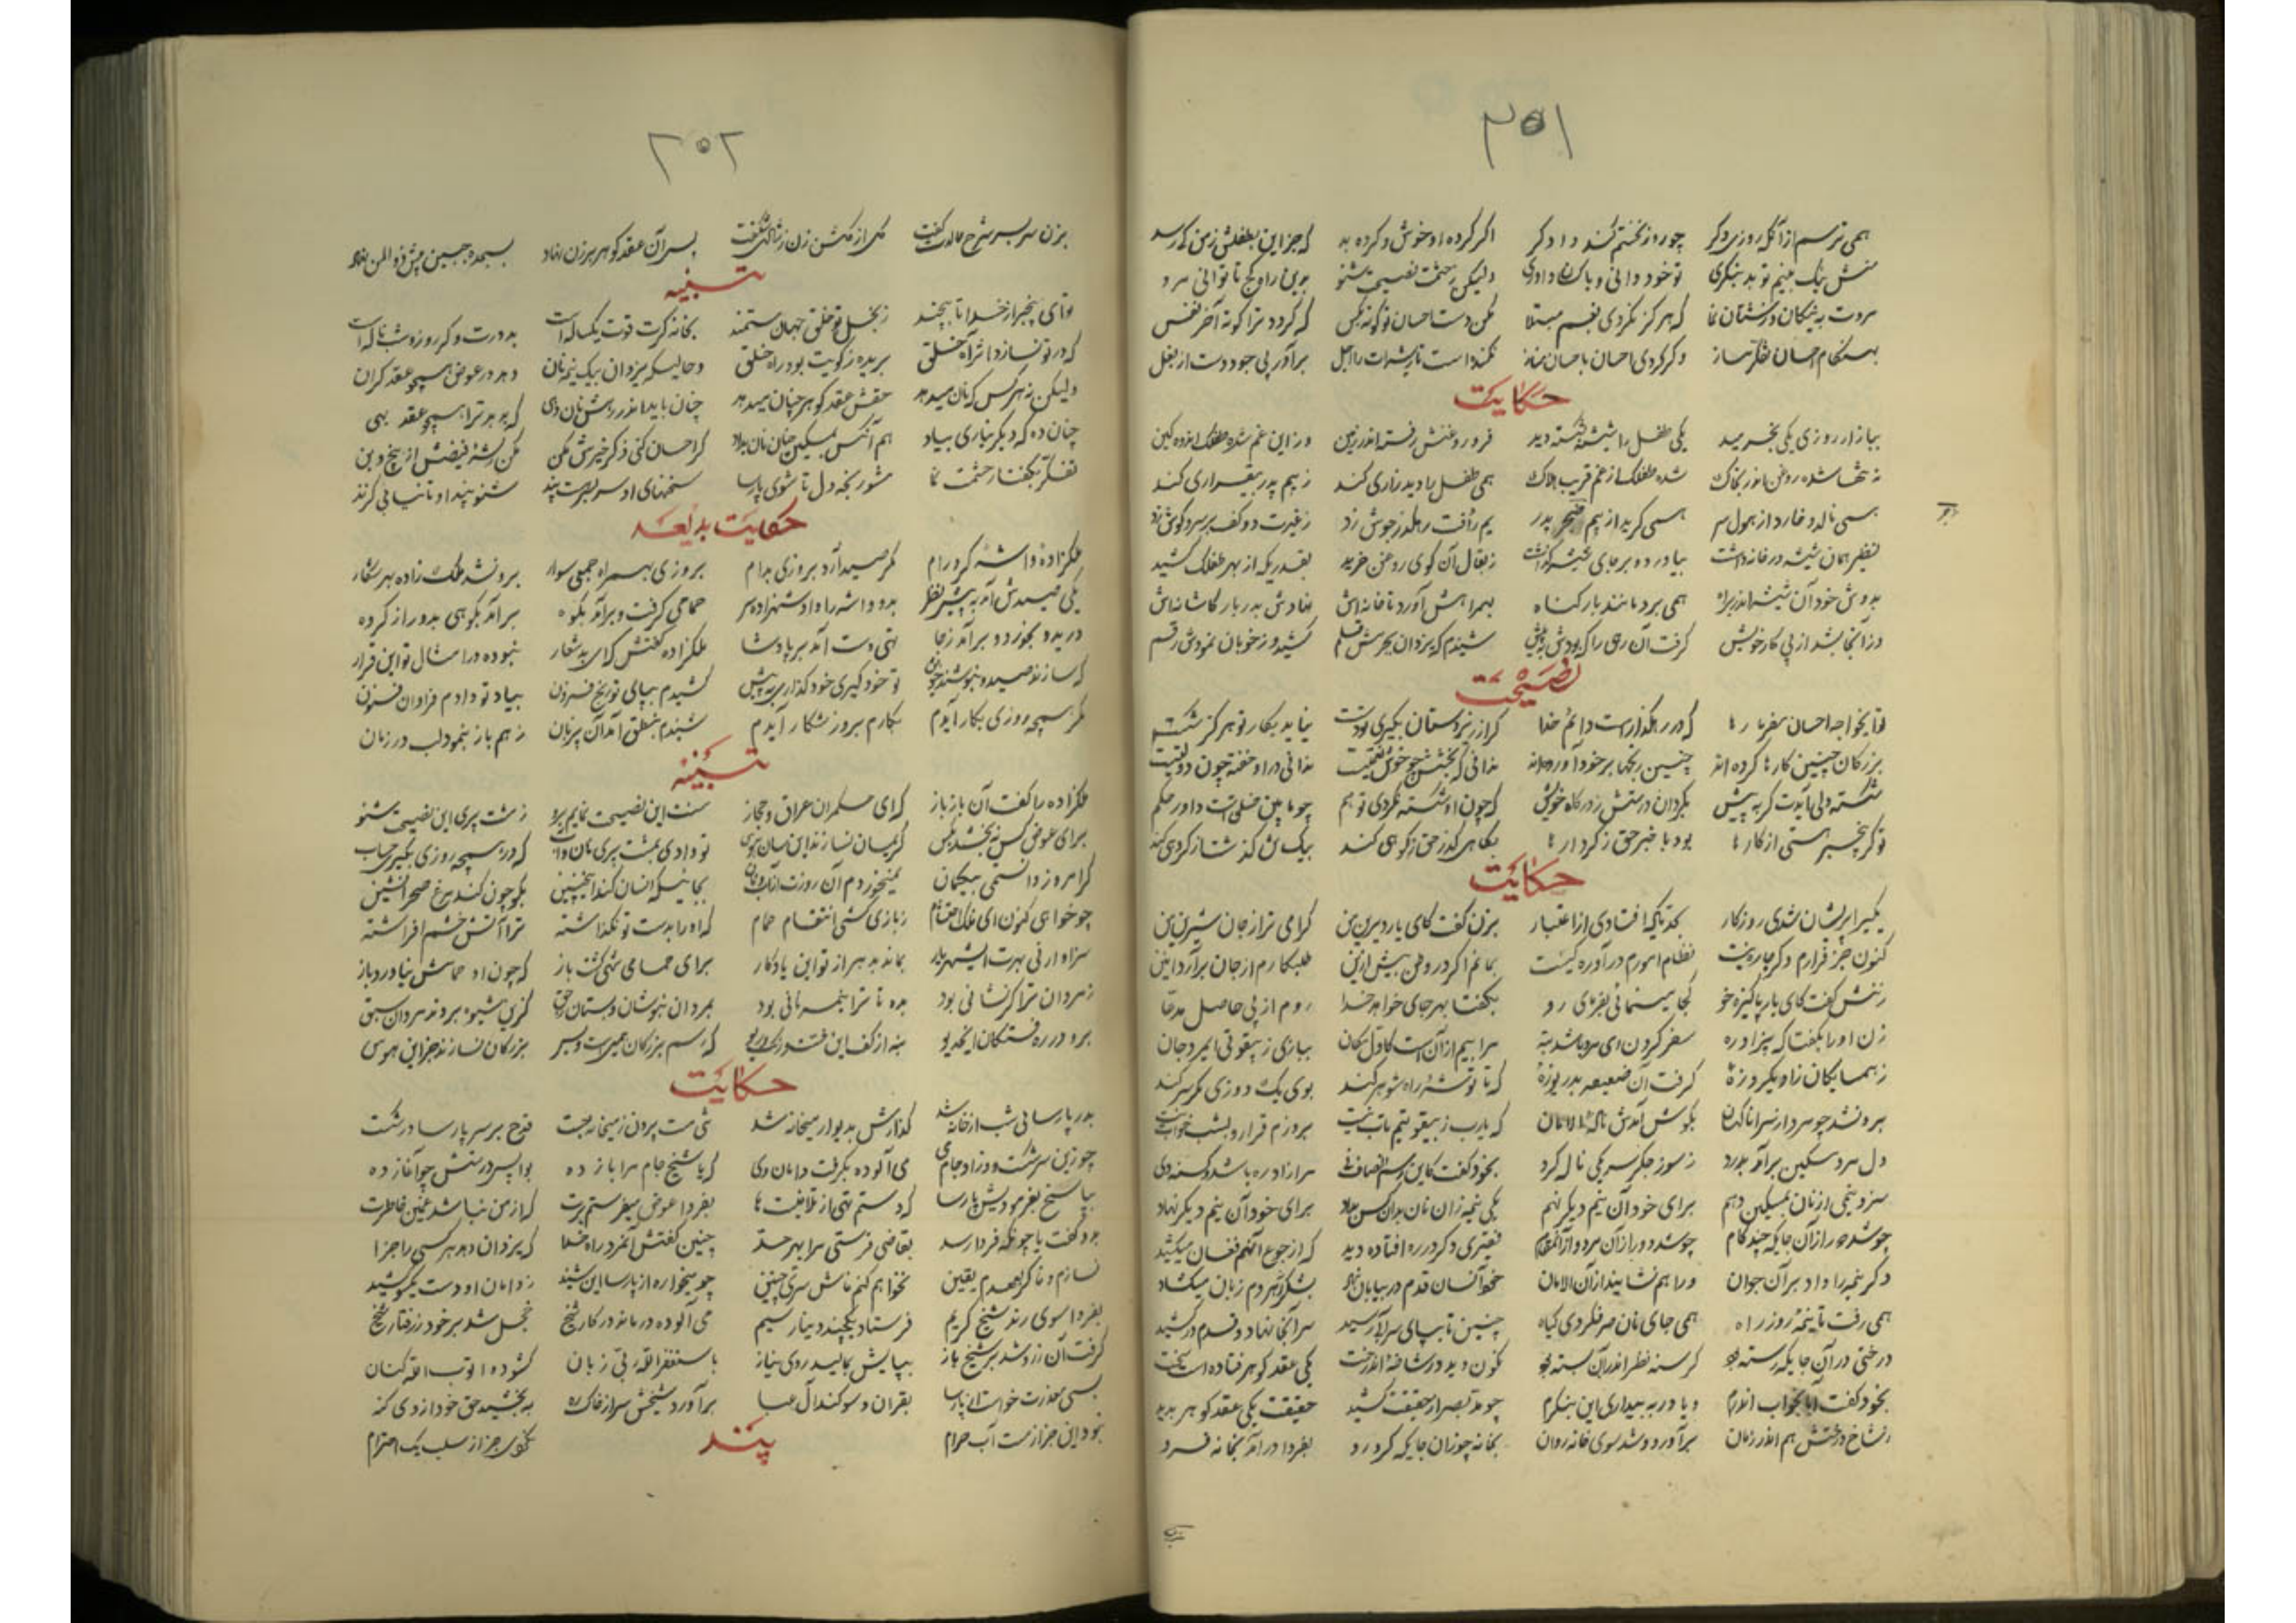 ۳۵۱
همی ترسم از آنکه روزی دگر چو روز نختم کند دادگر اگر کرده او خوش و کرده بد که جز این بطفلش زمن که رسد
منش نیک بینم تو بد بنگری تو خود دانی و پاک داوری ولیکن نصیحت شنو بدین راه کج تا توانی مرو
مروت به نیکان که هرگز نکردی بغم مبتلا مکن دست احسان تو کوته ز کس که گردد ترا کوته آخر نفس
بهنگام احسان تفکر مساز وگر کردی احسان باحسان مناز اجل برآور پی جود دست از بغل
حکایت
ببازار روزی یکی بخرید یکی طفل را شیشه بشکسته دید فرو روغنش رفته اندر زمین وز این غم شده طفلک اندوهگین
شده طفلک از غم قریب هلاک همی طفل را دید زاری کند ز بیم پدر بیقراری کند
همی نالد و خارد از هول سر همی گرید از بیم زجر پدر یم رأفت رهگذر جوش زد ز غیرت دو کف بر سر و گوش زد
نظیر همان شیشه در خانه داشت بیاورد و بر جای شیشه گذاشت ز بقال آن کوی روغن خرید بقدریکه از بهر طفلک کشید
بدوش خود آن شیشه اندر براه همی برد مانند بار گناه بهمراهش آورد تا خانه‌اش نهادش بدربار کاشانه‌اش
وز آنجا بشد از پی کار خویش گرفت آن رهی را که بودش به پیش شنیدم که یزدان بجرمش قلم کشید و ز خوبان نمودش رقم
نصیحت
تو ایخواجه احسان بفرما رها که در رهگذار است دائم خدا گر از زیردستان بگیری تو دست نیاید بکار تو هرگز شکست
بزرگان چنین کارها کرده اند چنین رنجها بر خود آورده اند ندانی که بخشش چو خوش نعمتیست ندانی در او خفته چون دولتیست
شکسته دلی آیدت گر به پیش مگردان درستش ز درگاه خویش که چون او شکسته نگردی تو هم چو مابین خلق است داور حکم
تو گر بیخبر هستی از کارها بود با خبر حق ز کردارها بکاهی گذر حق ز کوهی کند
حکایت
یکی را پریشان شدی روزگار بحدیکه افتادی از اعتبار بزن گفت کای یار دیرین من گرامی تر از جان شیرین من
کنون جز فرارم دگر چاره نیست نظام امورم در آواره گیست بمانم اگر در وطن بیش ازین طلبکارم از جان برآرد انین
زنش گفت کای یار پاکیزه خو کجا میتوانی بفرمای رو بگفتا بهر جای خواهد خدا روم از پی حاصل مدعا
زن او را بگفتا که بیزاد ره سفر کردن ای مرد باشد تبه مرا بیم از آن است کاول مکان بباری ز بیقوتی ایمرد جان
ز همسایگان زاد یکروزهٔ گرفت آن ضعیفه بدریوزهٔ که تا توشهٔ راه شوهر کند بوی یک دو روزی مگر سر کند
برون شد چو مرد از سرا ناگهان بگوش آمدش نالهٔ الامان که یارب ز بیقوتیم تاب نیست بروزم قرار و بشب خواب نیست
دل مرد مسکین برآمد بدرد ز سوز جگر سر یکی ناله کرد بخود گفت کاین رسم انصاف نی مرا زاد ره باشد و گسنه وی
سزد نیمی از نان بمسکین دهم برای خود آن نیم دیگر نهم یکی نیمه زان نان بدان کس بداد برای خود آن نیم دیگر نهاد
چو شد دور از آن جایکه چند گام چو شد دور از آن مرد و از آن مقام فقیری دگر در ره افتاده دید که از جوع آنهم فغان میکشید
دگر نیمه را داد بر آن جوان ورا هم نشانید از آن الامان خود آنسان قدم در بیابان نهاد بشکر کرم زبان میگشاد
همی رفت تا نیمهٔ روز راه همی جای نان صرف کردی گیاه چنین تا بپای سرائی رسید سر آنجا نهاد و قدم درکشید
درختی در آن جایکه رسته بود گرسنه نظر اندر آن بسته بود نگون دید در شاخهٔ آندرخت یکی عقد گوهر فتاده است سخت
بخود گفت آیا بخواب اندرم و یا در به بیداری این بنگرم چو مد بصر از حقیقت کشید حقیقت یکی عقد گوهر بدید
ز شاخ درختش هم اندر زمان برآورد و شد سوی خانه روان بخانه چو زان جایکه کرد رو بفردا درآمد بخانه فرو
۳۵۲
بزن سر بسر شرح حالت بگفت گل از گلشن زن ز شادی شکفت پس آن عقد گوهر بر زن نهاد بسجده جبین پیش ذوالمن نهاد
تنبیه
تو ای بیخبر از خدا تا بچند ز بخل تو خلق جهان مستمند بخانه گرت قوت یکساله است
که در تو نسازد اثر آه خلق بریده ز کویت بود راه خلق و حال آنکه یزدان بیک نیمه نان دهد در عوض همچو عقد گران
ولیکن نه هر کس که نان میدهد حقش عقد گوهر چنان میدهد چنان باید اندر رهش نان دهی که بدهد ترا همچو عقد بهی
چنان ده که دیگر نیاری بیاد هم آنکس بمسکین چنان نان بداد گر احسان کنی ذکر خیرش مکن مکن رشتهٔ فیضش از بیخ و بن
تفکر بگفتار حشمت نما مشو رنجه دل تا شوی پارسا سخنهای او سر بسر هست پند شنو پند او تا نیابی گزند
حکایت بدیعه
ملکزادهٔ واشهٔ کرد رام مگر صید آرد بروزی بدام بروزی بهمراه جمعی سوار برون شد ملک زاده بهر شکار
یکی صیدش آمد به پیش نظر بدو واشه را داد شهزاده سر حمامی گرفت و برآمد بکوه برآمد بکوهی بدور از گروه
درید و بخورد و برآمد ز جا تهی دست آمد بر پادشا ملکزاده گفتش که ای بد شعار نبوده در امثال تو این قرار
که سازند صید و بنوشند خون تو خود گیری خود گذاری به پیش کشیدم بپای تو رنج فزون بیاد تو دادم فراوان فسون
مگر همچه روزی بکار آیدم بکارم بروز شکار آیدم شنیدم بنطق آمد آن بی زبان ز هم باز بنمود لب در زمان
تنبیه
ملکزاده را گفت آن باز باز که ای حکمران عراق و حجاز منت این نصیحت نمایم برو زشت پری این نصیحت شنو
برای عوض کس نه بخشد بکس کریمان نسازند این سان هوس تو دادی بمشت پری نان و آب که در همچه روزی بگیری حساب
گر امروز دانستمی بیگمان نمیخوردم آن روزت از آب و نان بجائیکه انسان کند اینچنین بگو چون کند مرغ صحرانشین
چو خواهی کنون ای ملک احتشام ز بازی کشی انتقام حمام که او را بدست تو نگذاشته ترا آتش خشم افراشته
سزاوار نی بهرت ای شهریار بماند بدهر از تو این یادگار برای حمامی شهی کشت باز که چون او حمامش نیاورد باز
ز مردان ترا گر نشانی بود بده تا ترا نیمه نانی بود بمردان بنوشان و بستان حق کزین شیوه بردند مردان سبق
برو در ره رفتگان ایخدیو که رسم بزرگان بزرگان نسازند جز این هوس
حکایت
بدر پارسائی شب از خانه شد گذارش بدیوار میخانه شد شی مست بیرون ز میخانه جست قدح بر سر پارسا در شکست
چو زین سرگذشت و در آن جام می می آلوده بگرفت دامان وی که یا شیخ جام مرا باز ده و یا پس درستش چو آغاز ده
بپاسخ بفرمودیش پارسا که دستم تهی از تلافیت ها بفردا عوض میفرستم برت که از من نباشد غمین خاطرت
بدو گفت یا چونکه فردا رسد تقاضی فرستی مرا بهر حد چنین گفتش آنمرد راه خدا که یزدان دهد هر کسی را جزا
نخواهم کنم فاش سری چنین چو میخواره از پارسا این شنید ز دامان او دست یکسو کشید
بفردا سوی رند شیخ کریم فرستاد یکچند دینار سیم می آلوده درماند در کار شیخ خجل شد بر خود ز رفتار شیخ
گرفت آن زر و شد بر شیخ باز بپایش بمالید روی نیاز باستغفرالله ربی زبان گشوده اتوب الله کنان
بسی معذرت خواست از پارسا بقرآن و سوگند آل عبا برآورد شیخش سر از خاک ره به بخشید حق خود از وی گنه
پند
بود این جز از مست آب حرام نگوی جز از سلب یک احترام